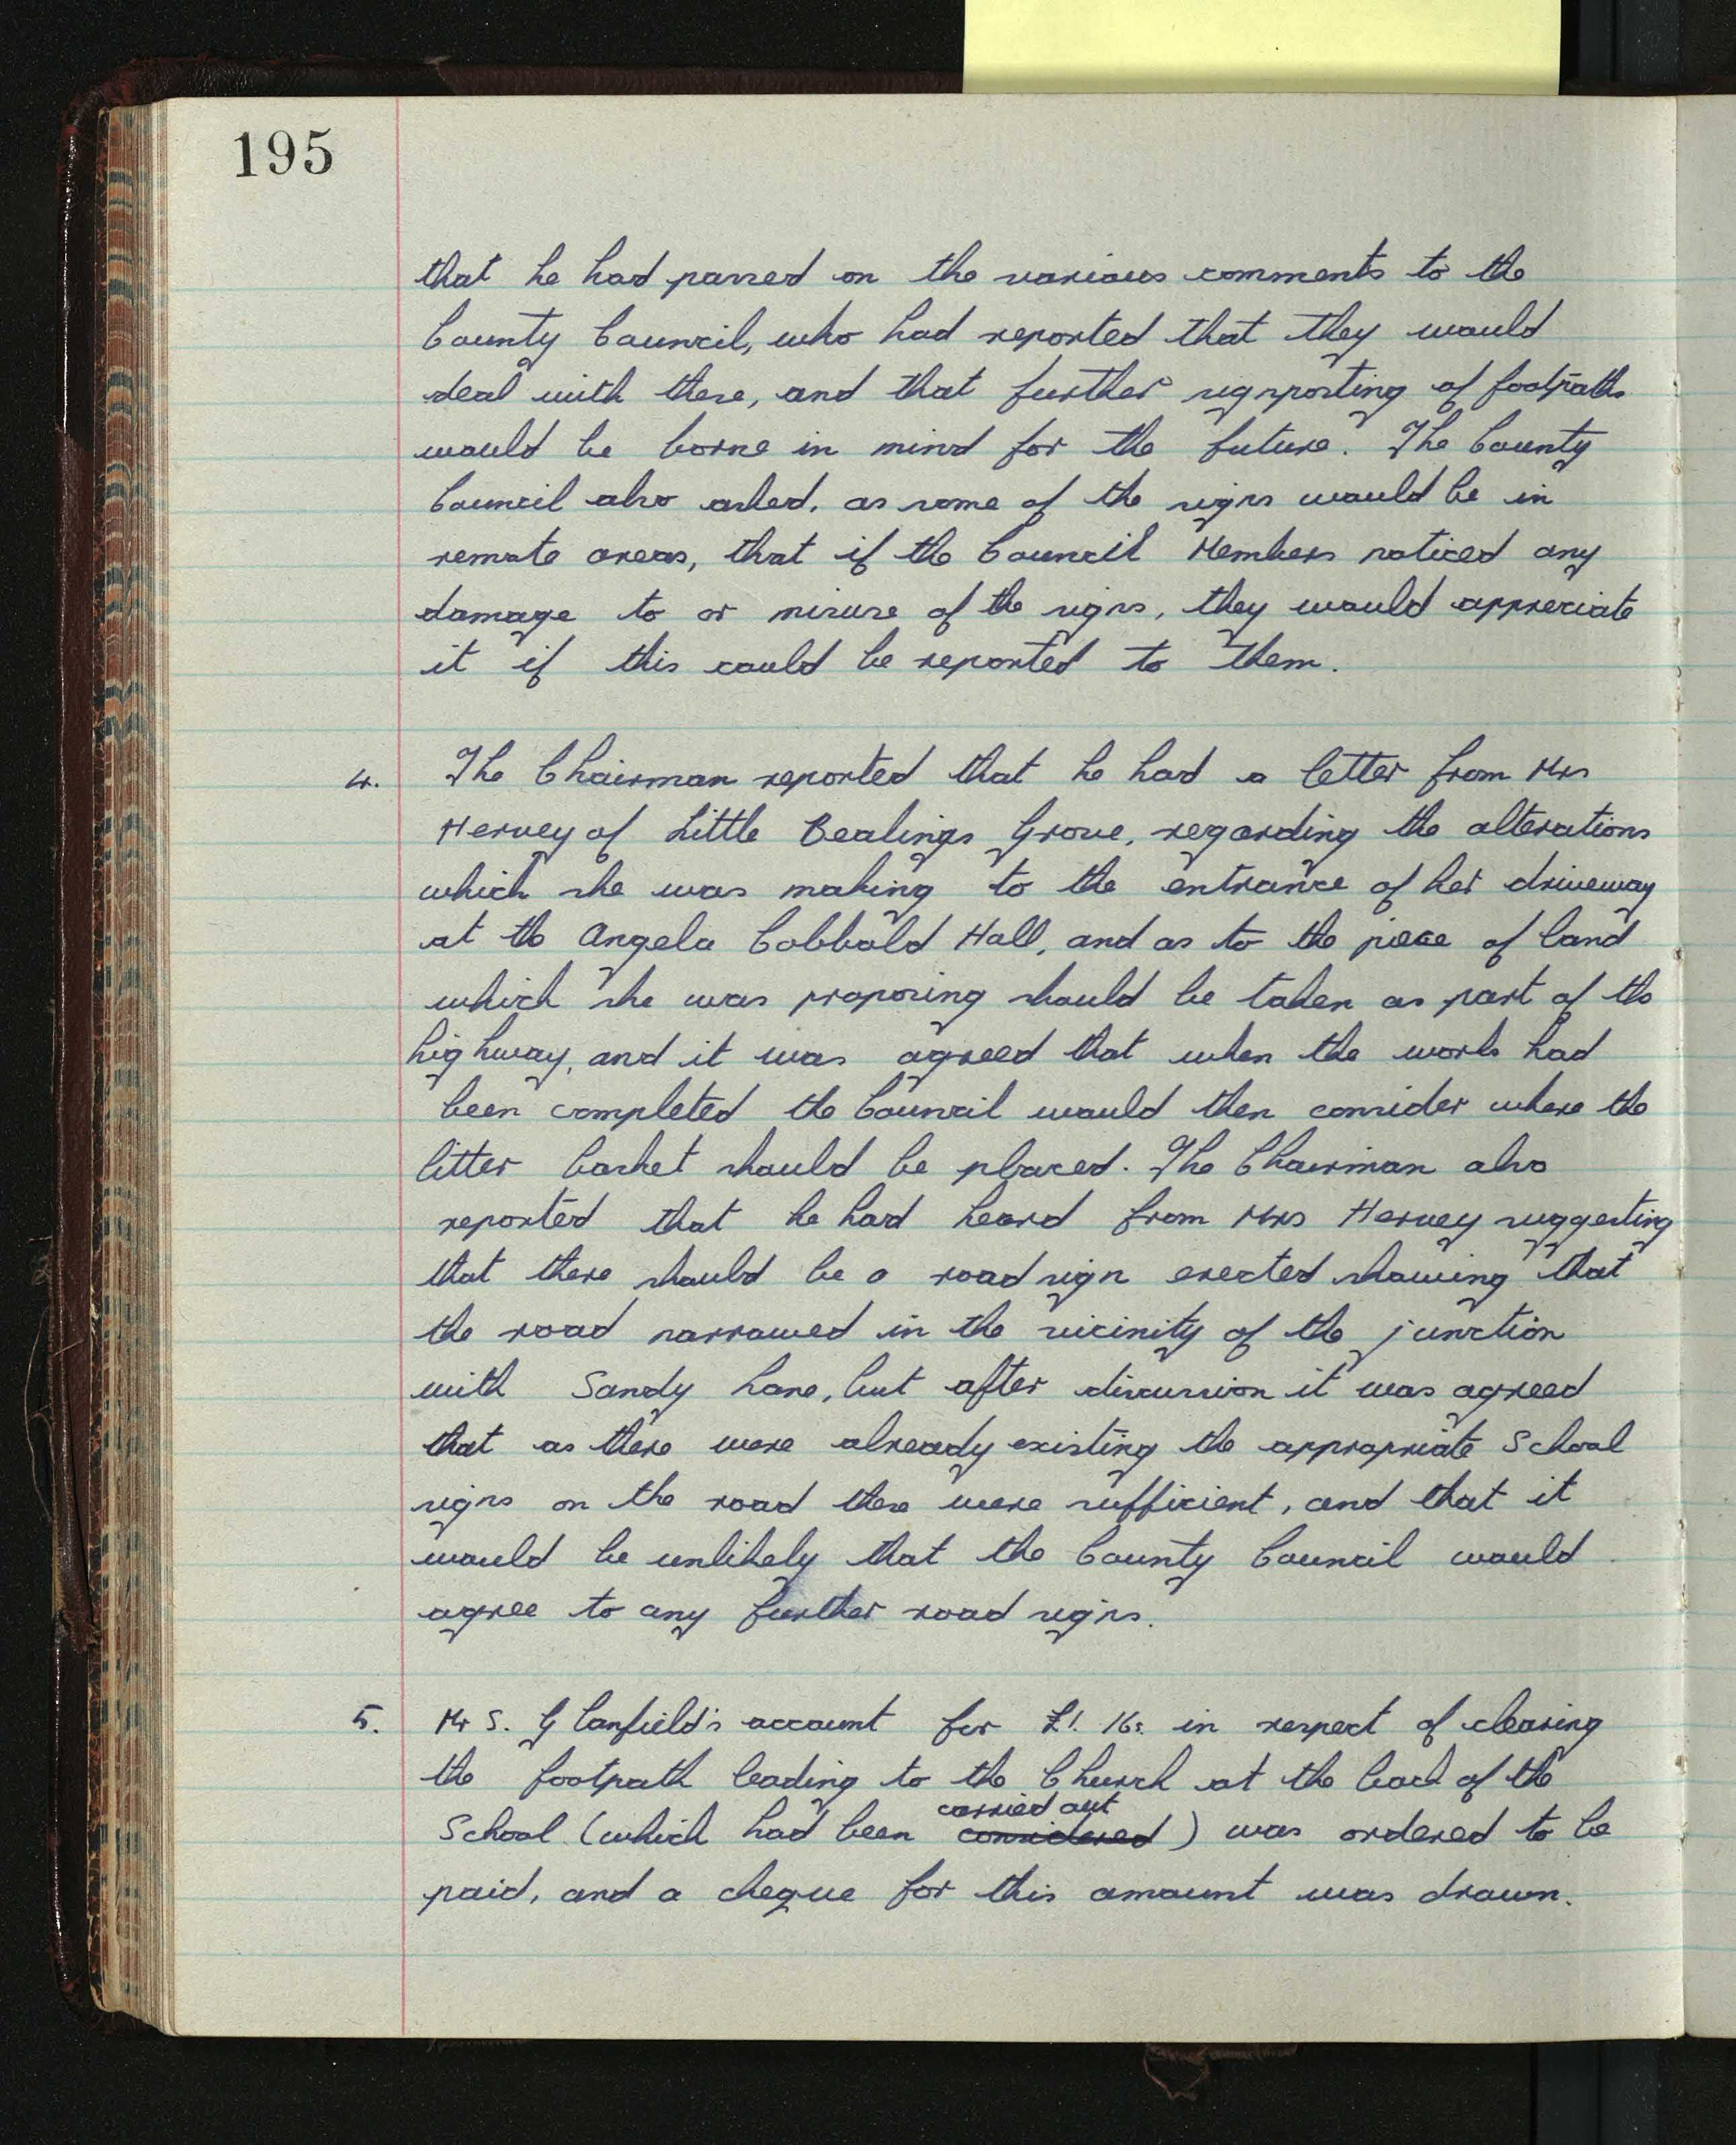 195
that he had passed on the various comments to the
County Council, who had reported that they would
deal with these, and that further signposting of footpaths
would be borne in mind for the future. The County
Council also asked, as some of the signs would be in
remote areas, that if the Council Members noticed any
damage to or misuse of the signs, they would appreciate
it if this could be reported to them.
4. The Chairman reported that he had a letter from Mrs
Hervey of Little Bealings Grove, regarding the alterations
which she was making to the entrance of her driveway
at the Angela Cobbold Hall, and as to the piece of land
which she was proposing should be taken as part of the
highway, and it was agreed that when the work had
been completed the Council would then consider where the
litter basket should be placed. The Chairman also
reported that he had heard from Mrs Hervey suggesting
that there should be a road sign erected showing that
the road narrowed in the vicinity of the junction
with Sandy Lane, but after discussion it was agreed
that as there were already existing the appropriate School
signs on the road these were sufficient, and that it
would be unlikely that the County Council would
agree to any further road signs.
5. Mr S. G Canfield's account for £1. 16s. in respect of clearing
the footpath leading to the Church at the back of the
carried out
School (which had been considered) was ordered to be
paid, and a cheque for this amount was drawn.